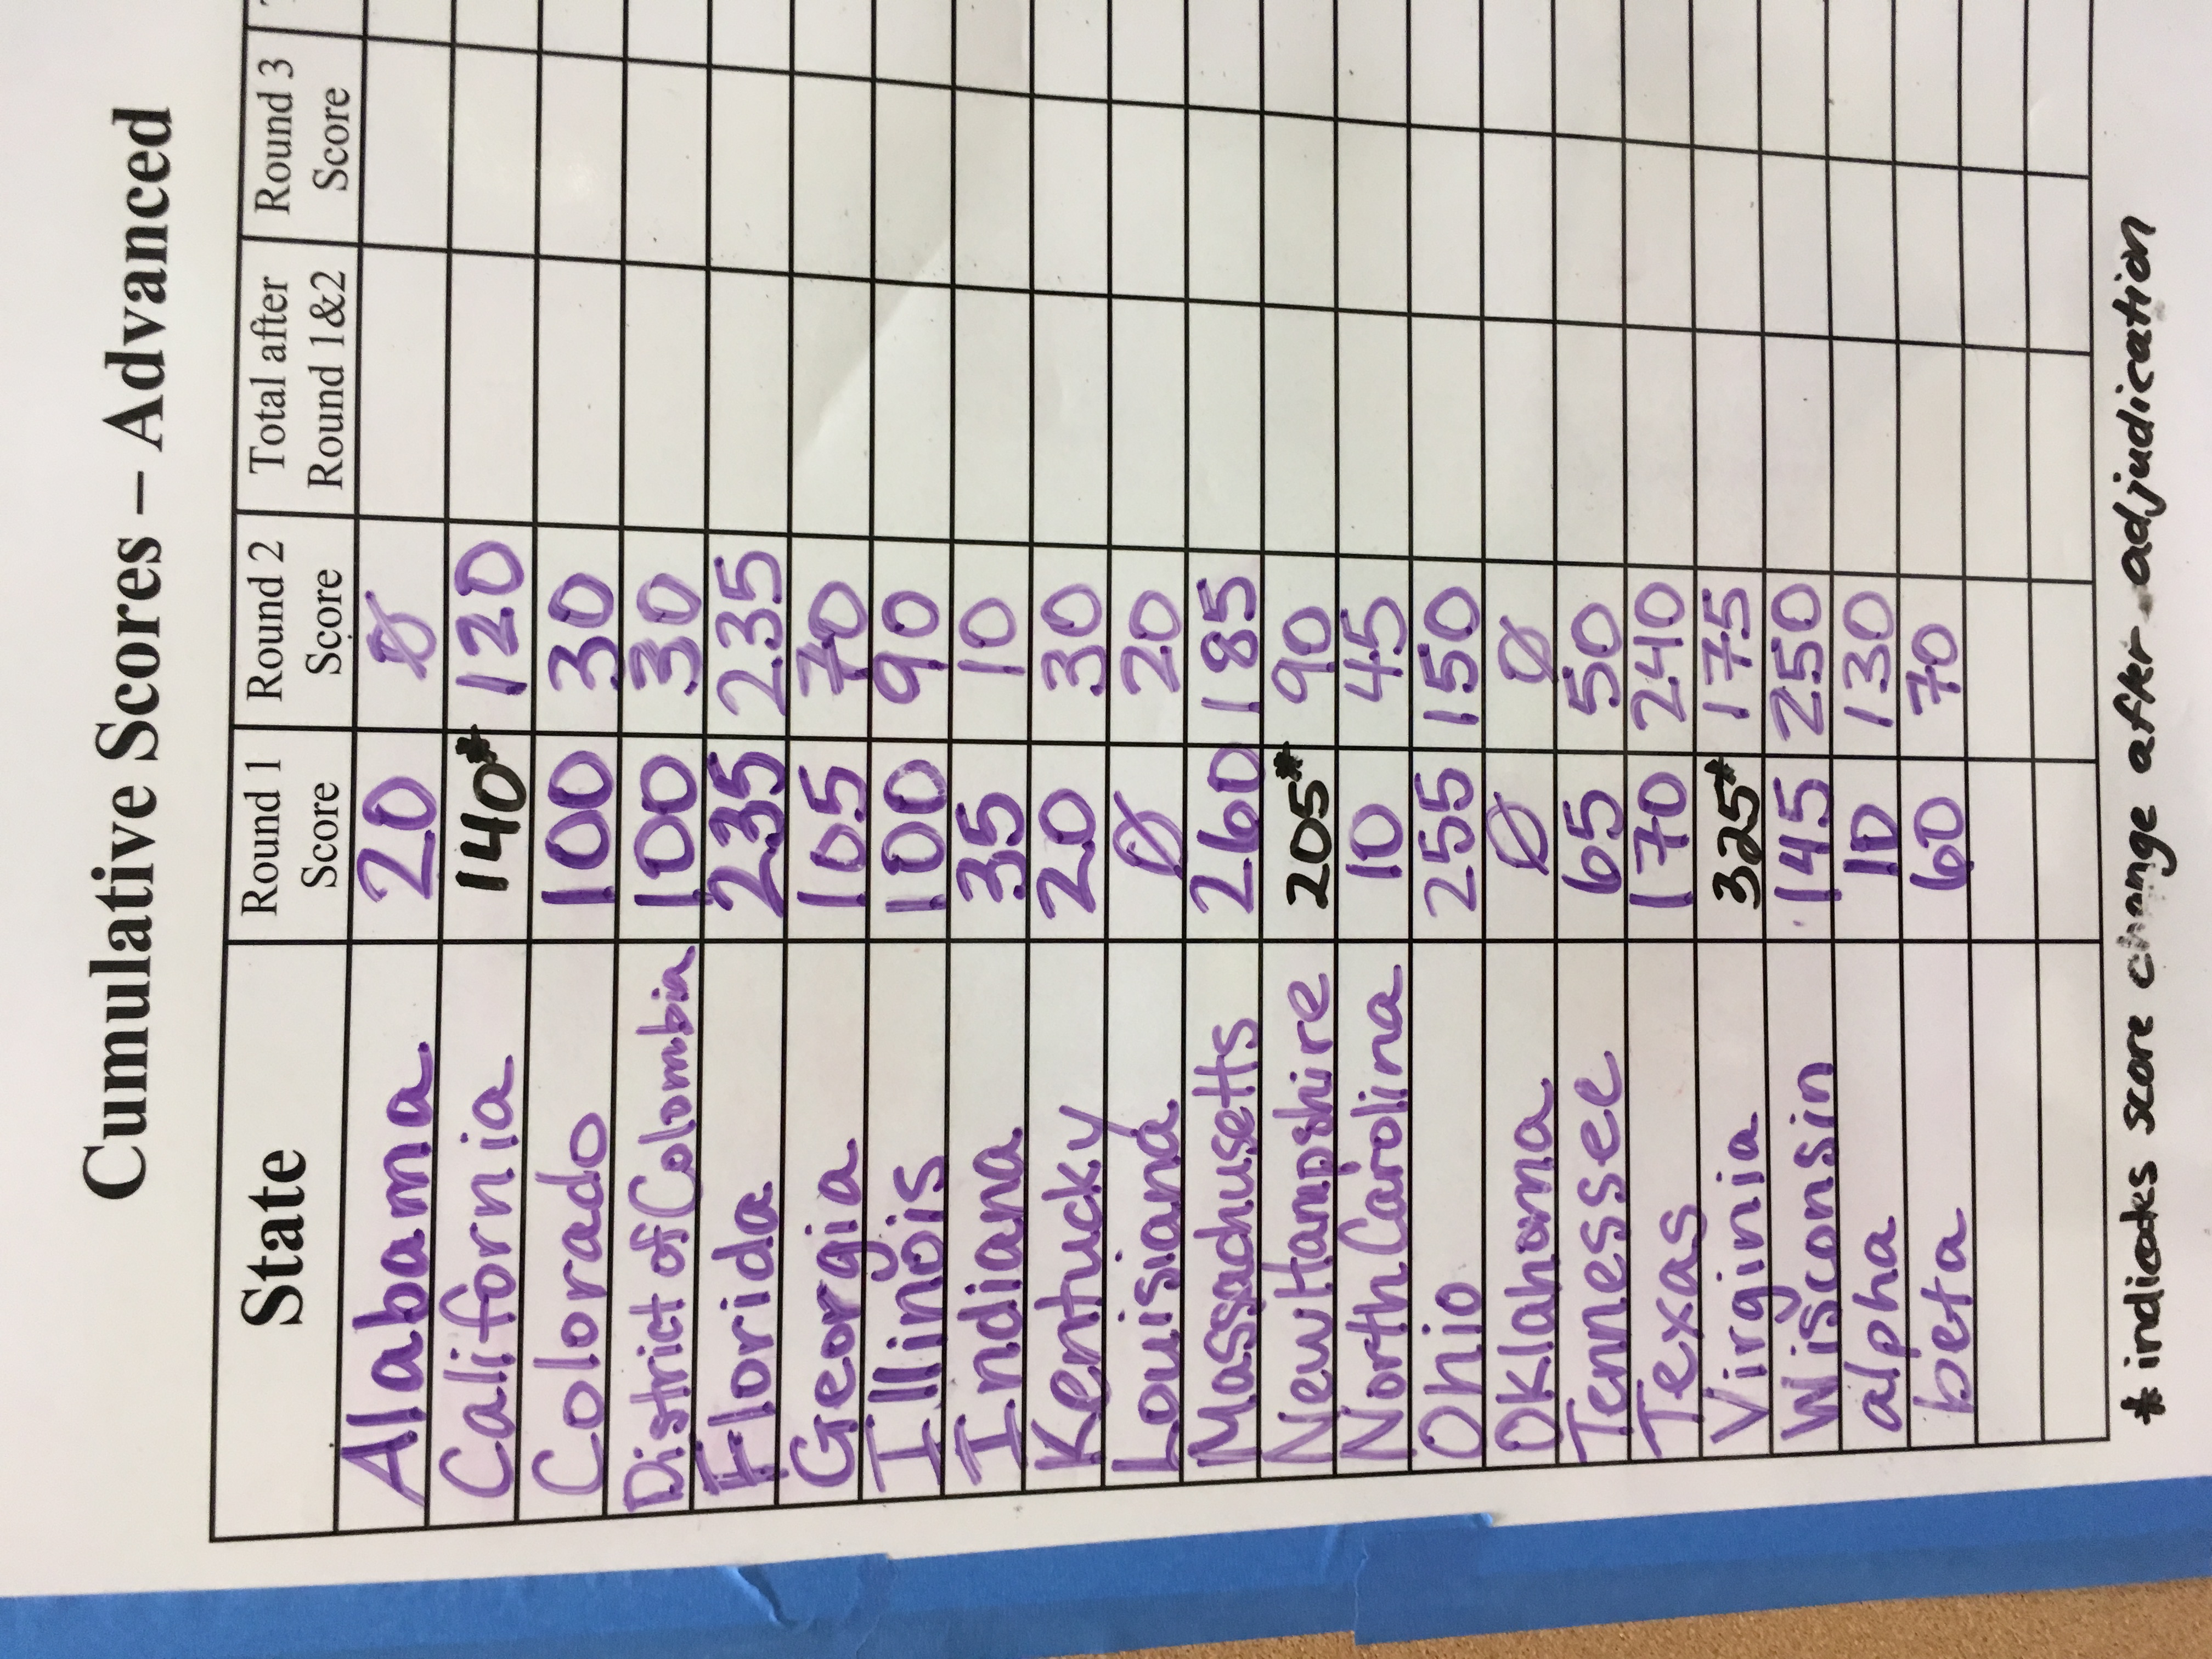 Cumulative Scores – Advanced
State Round 1 Score Round 2 Score Total after Round 1&2 Round 3 Score
Alabama 20 Ø
California 140* 120
Colorado 100 30
District of Colombia 100 30
Florida 235 235
Georgia 105 70
Illinois 100 90
Indiana 35 10
Kentucky 20 30
Louisiana Ø 20
Massachusetts 260 185
New Hampshire 205* 90
North Carolina 10 45
Ohio 255 150
Oklahoma Ø Ø
Tennessee 65 50
Texas 170 240
Virginia 325* 175
Wisconsin 145 250
alpha 10 130
beta 60 70
* indicates score change after adjudication